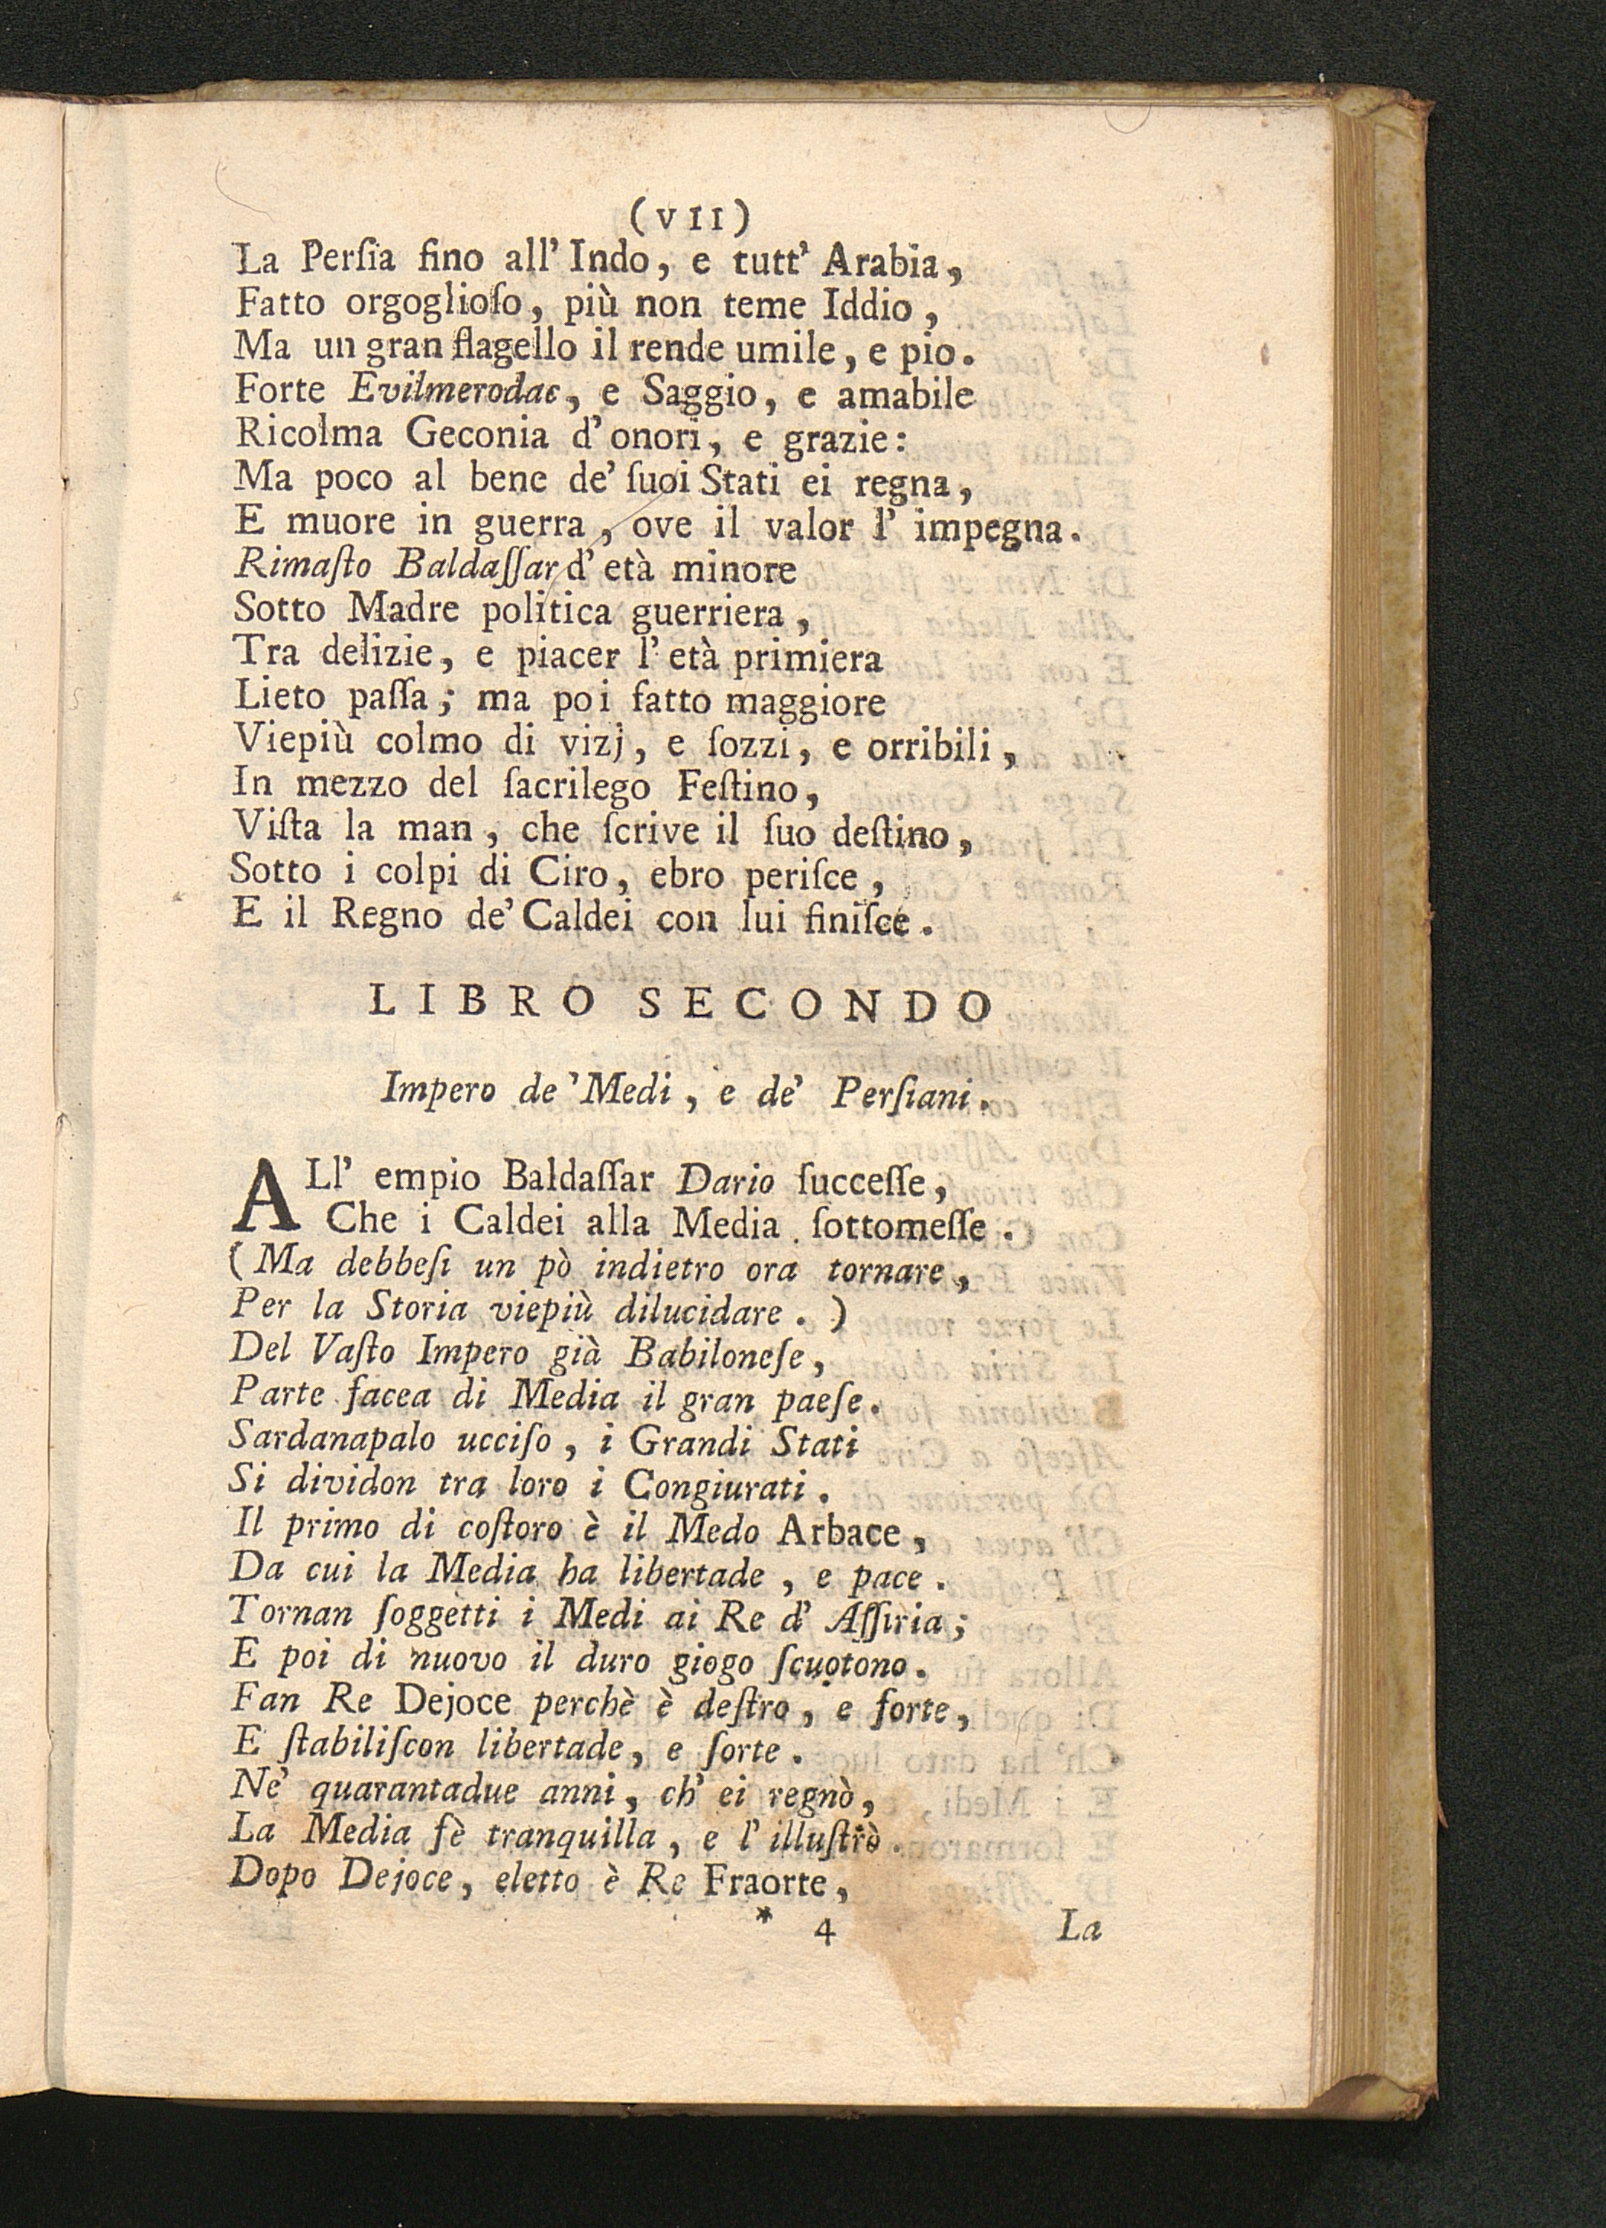 (VII)
La Perſia fino all' Indo, e tutt' Arabia,
Fatto orgoglioſo, più non teme Iddio,
Ma un gran flagello il rende umile, e pio.
Forte Evilmerodac, e Saggio, e amabile
Ricolma Geconia d'onori, e grazie:
Ma poco al bene de' ſuoi Stati ei regna,
E muore in guerra, ove il valor l' impegna.
Rimaſto Baldaſſar d' età minore
Sotto Madre politica guerriera,
Tra delizie, e piacer l' età primiera
Lieto paſſa; ma poi fatto maggiore
Viepiù colmo di vizj, e ſozzi, e orribili,
In mezzo del ſacrilego Feſtino,
Viſta la man, che ſcrive il ſuo deſtino,
Sotto i colpi di Ciro, ebro periſce,
E il Regno de' Caldei con lui finiſce.
LIBRO SECONDO
Impero de' Medi, e de' Perſiani.
ALl' empio Baldaſſar Dario ſucceſſe,
Che i Caldei alla Media ſottomeſſe.
(Ma debbeſi un pò indietro ora tornare,
Per la Storia viepiù dilucidare.)
Del Vaſto Impero già Babiloneſe,
Parte facea di Media il gran paeſe.
Sardanapalo ucciſo, i Grandi Stati
Si dividon tra loro i Congiurati.
Il primo di coſtoro è il Medo Arbace,
Da cui la Media ha libertade, e pace.
Tornan ſoggetti i Medi ai Re d' Aſſiria;
E poi di nuovo il duro giogo ſcuotono.
Fan Re Dejoce perchè è deſtro, e forte,
E ſtabiliſcon libertade, e ſorte.
Ne' quarantadue anni, ch' ei regnò,
La Media fè tranquilla, e l' illuſtrò.
Dopo Dejoce, eletto è Re Fraorte,
* 4 La